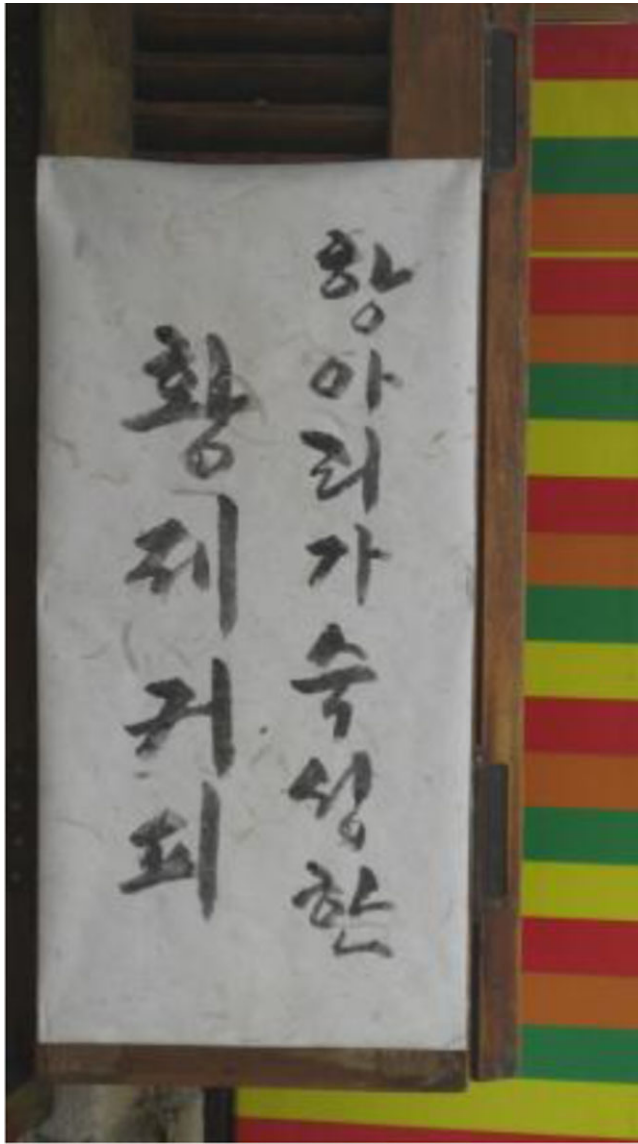 항아리가숙성한
황제커피